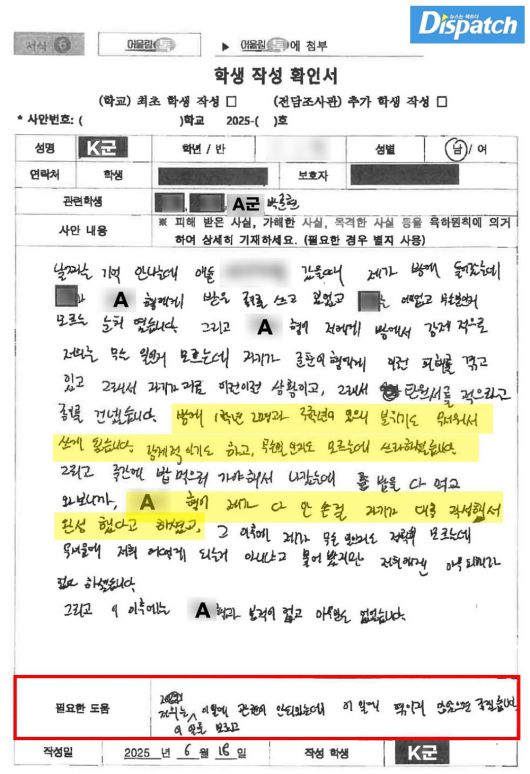 뉴스는 팩트다
Dispatch
서식 6
어울림 톡
▶ 어울림 톡에 첨부
학생 작성 확인서
(학교) 최초 학생 작성 □ (전담조사관) 추가 학생 작성 □
* 사안번호: ( )학교 2025-( )호
성명 K군 학년 / 반 성별 남 / 여
연락처 학생 보호자
관련학생 A군
사안 내용 ※ 피해 받은 사실, 가해한 사실, 목격한 사실 등을 육하원칙에 의거하여 상세히 기재하세요. (필요한 경우 별지 사용)
날짜는 기억 안나는데 갔을때 제가 방에 들어갔는데
A 형에게 받은 종이를 쓰고 있었고
모르는 눈치 였습니다. 그리고 A 형이 저에게 방에서 강제적으로
저희는 무슨 일인지 모르는데 자기가 형에게 이런 피해를 겪고
있고 그래서 자기가 이런이런 상황이고, 그래서 탄원서를 적으라고
종이를 건넸습니다. 방에 1학년 2명과 3학년이 있으니 분위기도 무서워서
쓰게 됬습니다. 강제적이기도 하고, 무슨일인지도 모르는데 쓰라하셨습니다.
그리고 중간에 밥 먹으러 가야해서 나갔는데 밥을 다 먹고
와보니까, A 형이 제가 다 안 쓴걸 자기가 대충 작성해서
완성 했다고 하셨고, 그 이후에 제가 무슨 일인지도 전혀 모르는데
저희 어떻게 되는거 아니냐고 물어 봤지만 저희에겐 아무 피해가
없다 하셨습니다.
그리고 이 이후에는 A 형과 본적이 없고 아무일도 없었습니다.
필요한 도움 저희는 이 일을 모르고 이일에 관련이 안되있는데 이 일에 엮이지 않았으면 좋겠습니다.
작성일 2025 년 6 월 18 일 작성 학생 K군